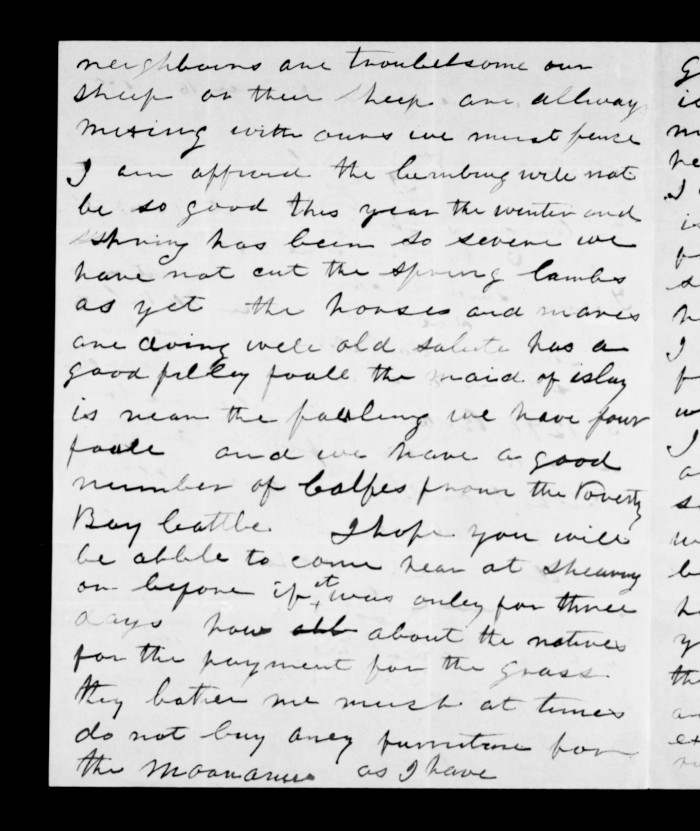 neighbours are troubelsome our
sheep or their sheep are allways
mixing with ours we must fence
I am affraid the lambing will not
be so good this year the winter and
spring has been so severe we
have not cut the spring lambs
as yet the horses and mares
are doing well old salute has a
good filley foall the maid of islay
is near the foaling we have four
foall and we have a good
number of calfes from the Poverty
Bay cattle I hope you will
be ablle to come hear at shearing
or before if it was onley for three
days how about the natives
for the payment for the grass
they bother me much at times
do not buy aney furniture for
the as I have
G